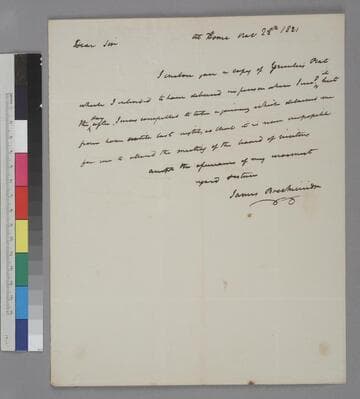 Dear Sir at Home Oct 28th 1821
I inclose you a copy of
which I intended to have delivered in person when I
the day after I was compelled to take a journey which detained me
from home untill last night, so that it is now impossible
for me to attend the meeting of the board of visitors
accept the assurance of my
regard &
James Breckinridge